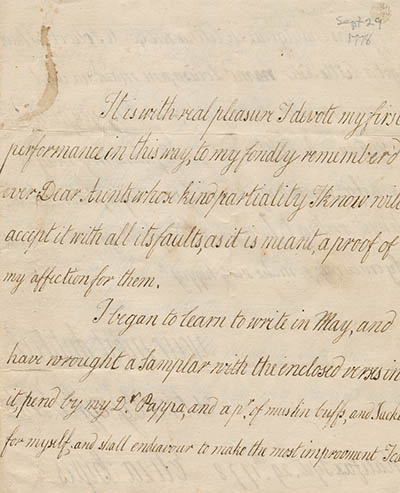 Sept 29
1778
It is with real pleasure I devote my first
performance in this way, to my fondly remember'd
ever Dear Aunts whose kind partiality I know will
accept it with all its faults, as it is meant, a proof of
my affection for them.
I began to learn to write in May, and
have wrought a Samplar with the enclosed verses in
it, pend by my Dr Pappa, and a pr. of muslin Cuffs, and Tucker
for myself, and shall endeavour to make the most improvment I can